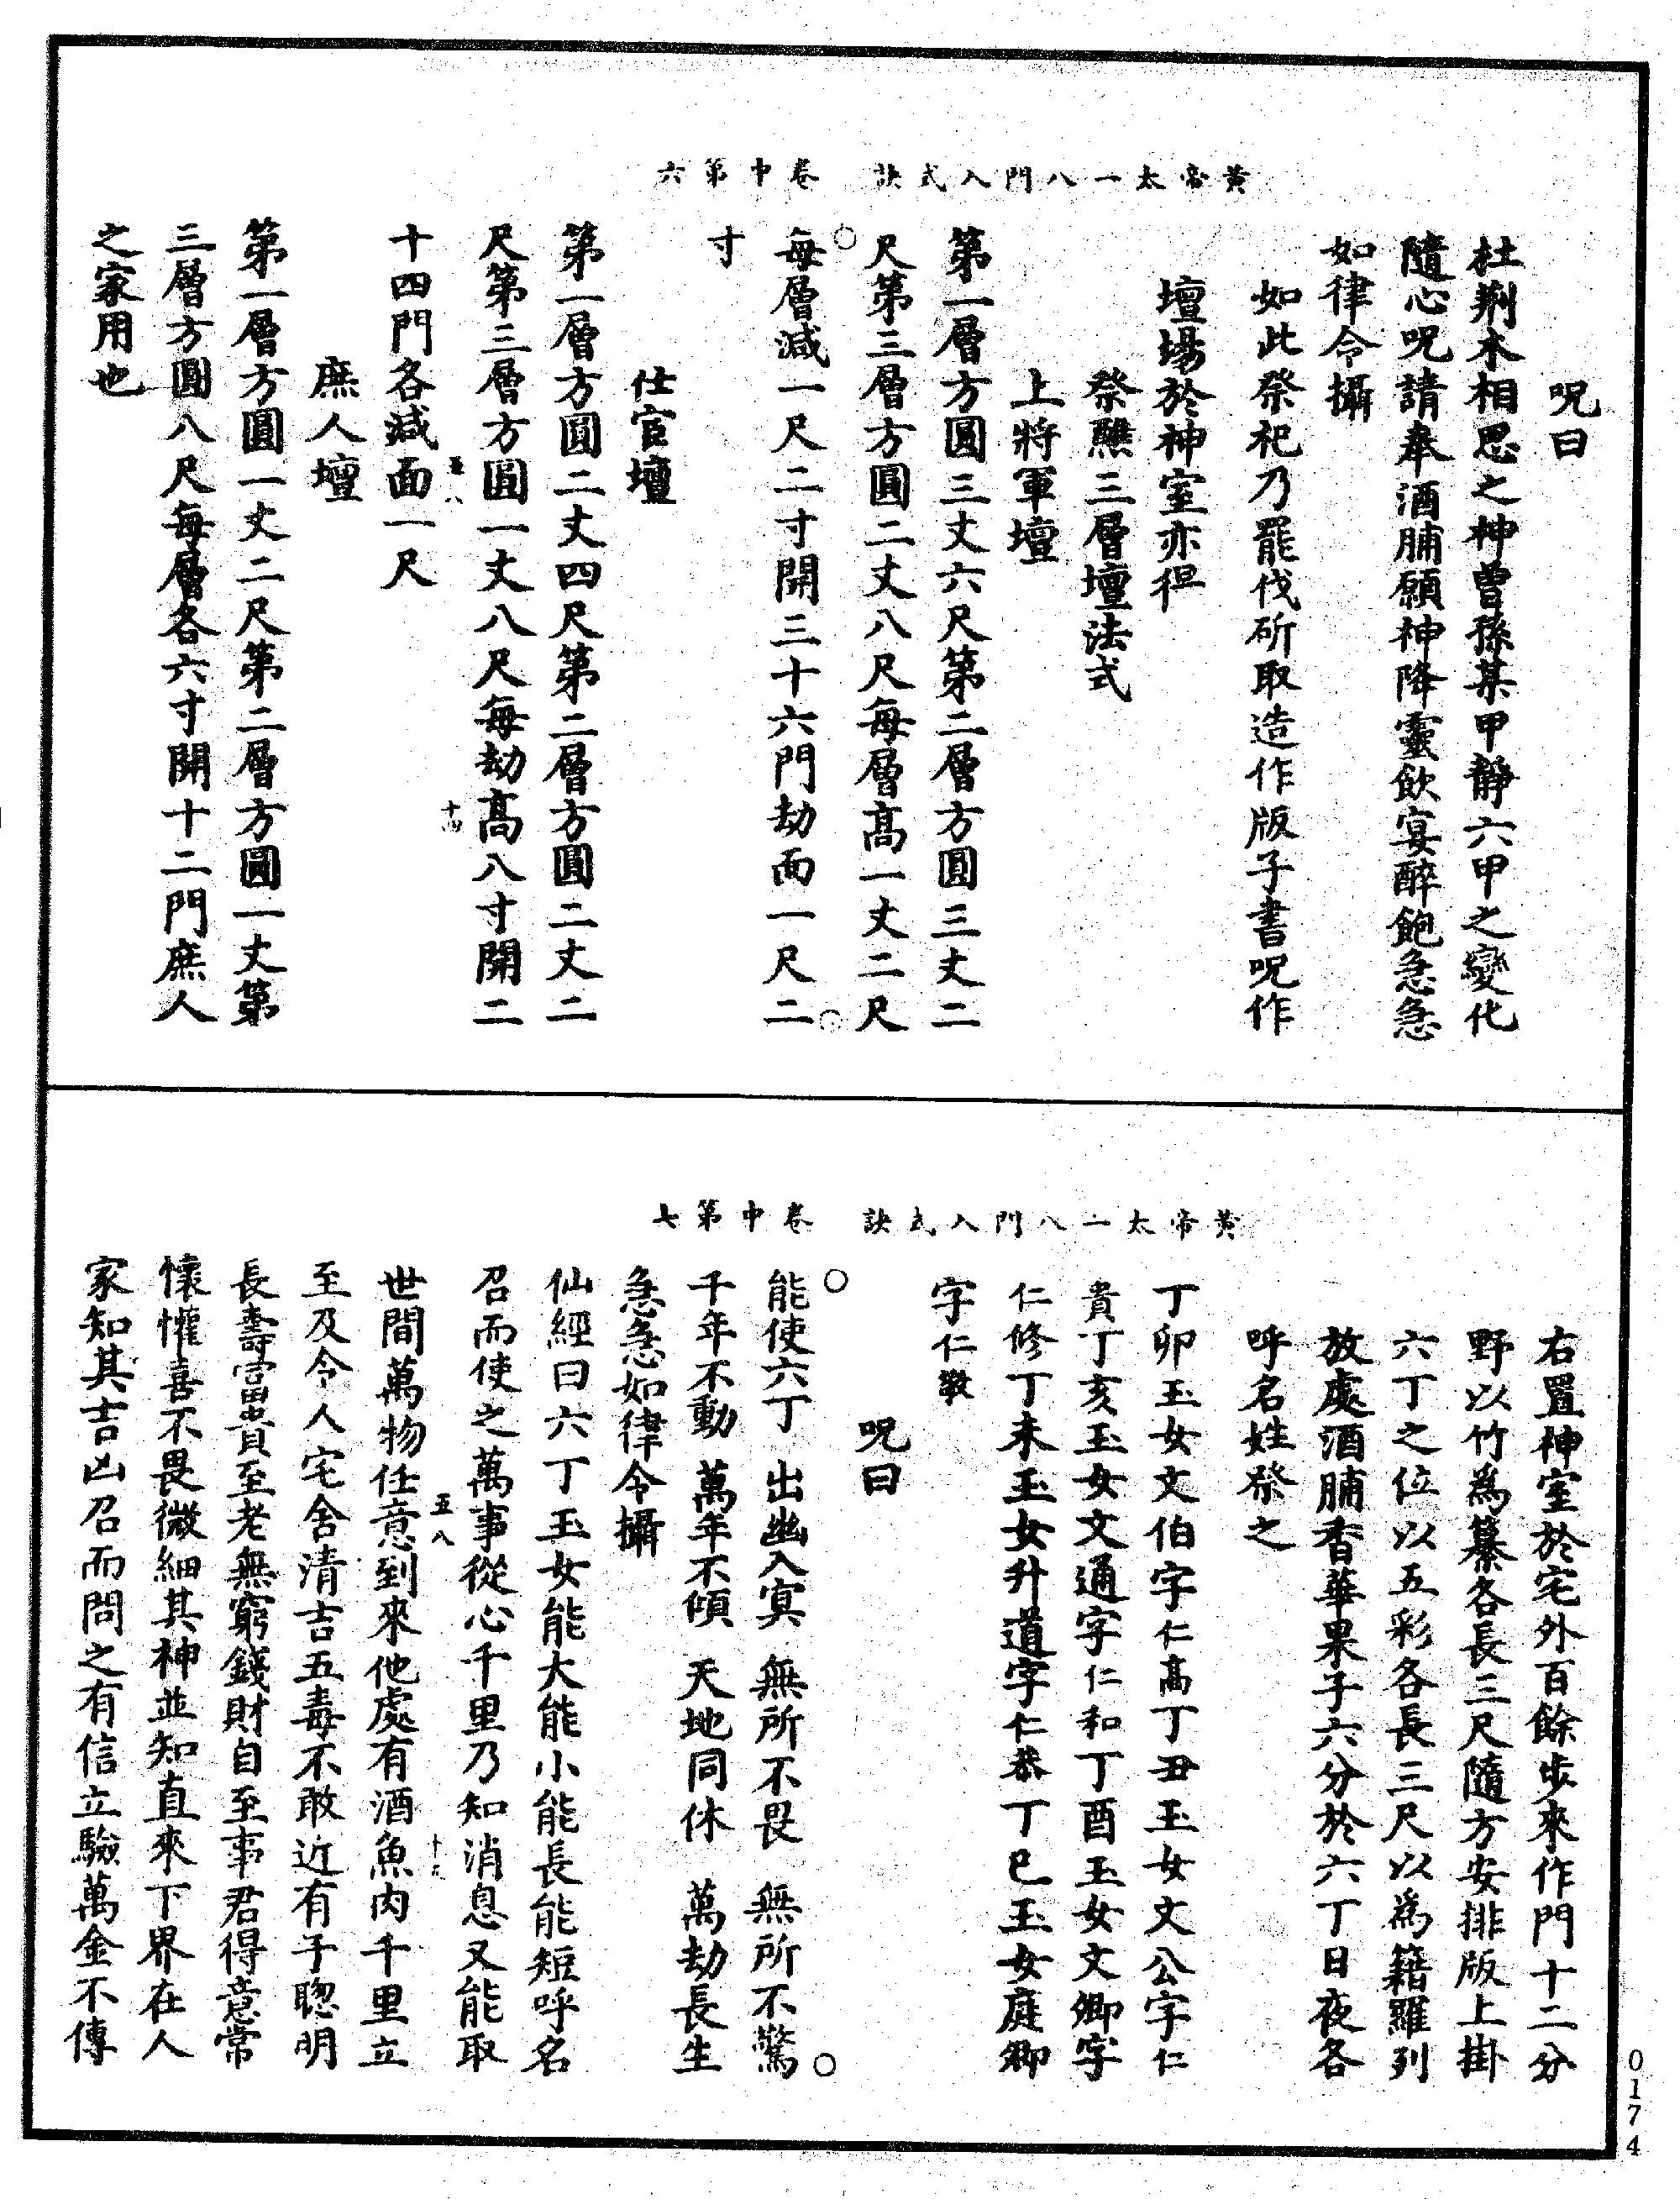 黃帝太一八門入式訣　卷中第六
呪曰
杜荆木相思之神曾孫某甲靜六甲之變化
隨心呪請奉酒脯願神降靈飲宴醉飽急急
如律令攝
如此祭祀乃罷伐斫取造作版子書呪作
壇場於神室亦得
祭醮三層壇法式
上將軍壇
第一層方圓三丈六尺第二層方圓三丈二
尺第三層方圓二丈八尺每層高一丈二尺
每層減一尺二寸開三十六門劫面一尺二
寸
仕官壇
第一層方圓二丈四尺第二層方圓二丈二
尺第三層方圓一丈八尺每劫高八寸開二
五八
十四
十四門各減面一尺
庶人壇
第一層方圓一丈二尺第二層方圓一丈第
三層方圓八尺每層各六寸開十二門庶人
之家用也
黃帝太一八門入式訣　卷中第七
右置神室於宅外百餘步來作門十二分
野以竹爲纂各長三尺隨方安排版上掛
六丁之位以五彩各長三尺以爲籍羅列
放處酒脯香華果子六分於六丁日夜各
呼名姓祭之
丁卯玉女文伯字仁高丁丑玉女文公字仁
貴丁亥玉女文通字仁和丁酉玉女文卿字
仁修丁未玉女升道字仁恭丁巳玉女庭卿
字仁敬
呪曰
能使六丁　出幽入寞　無所不畏　無所不驚
千年不動　萬年不傾　天地同休　萬劫長生
急急如律令攝
仙經曰六丁玉女能大能小能長能短呼名
召而使之萬事從心千里乃知消息又能取
五八
十五
世間萬物任意到來他處有酒魚肉千里立
至及令人宅舍清吉五毒不敢近有子聰明
長壽富貴至老無窮錢財自至事君得意常
懷懽喜不畏微細其神並知直來下界在人
家知其吉凶召而問之有信立驗萬金不傳
0174